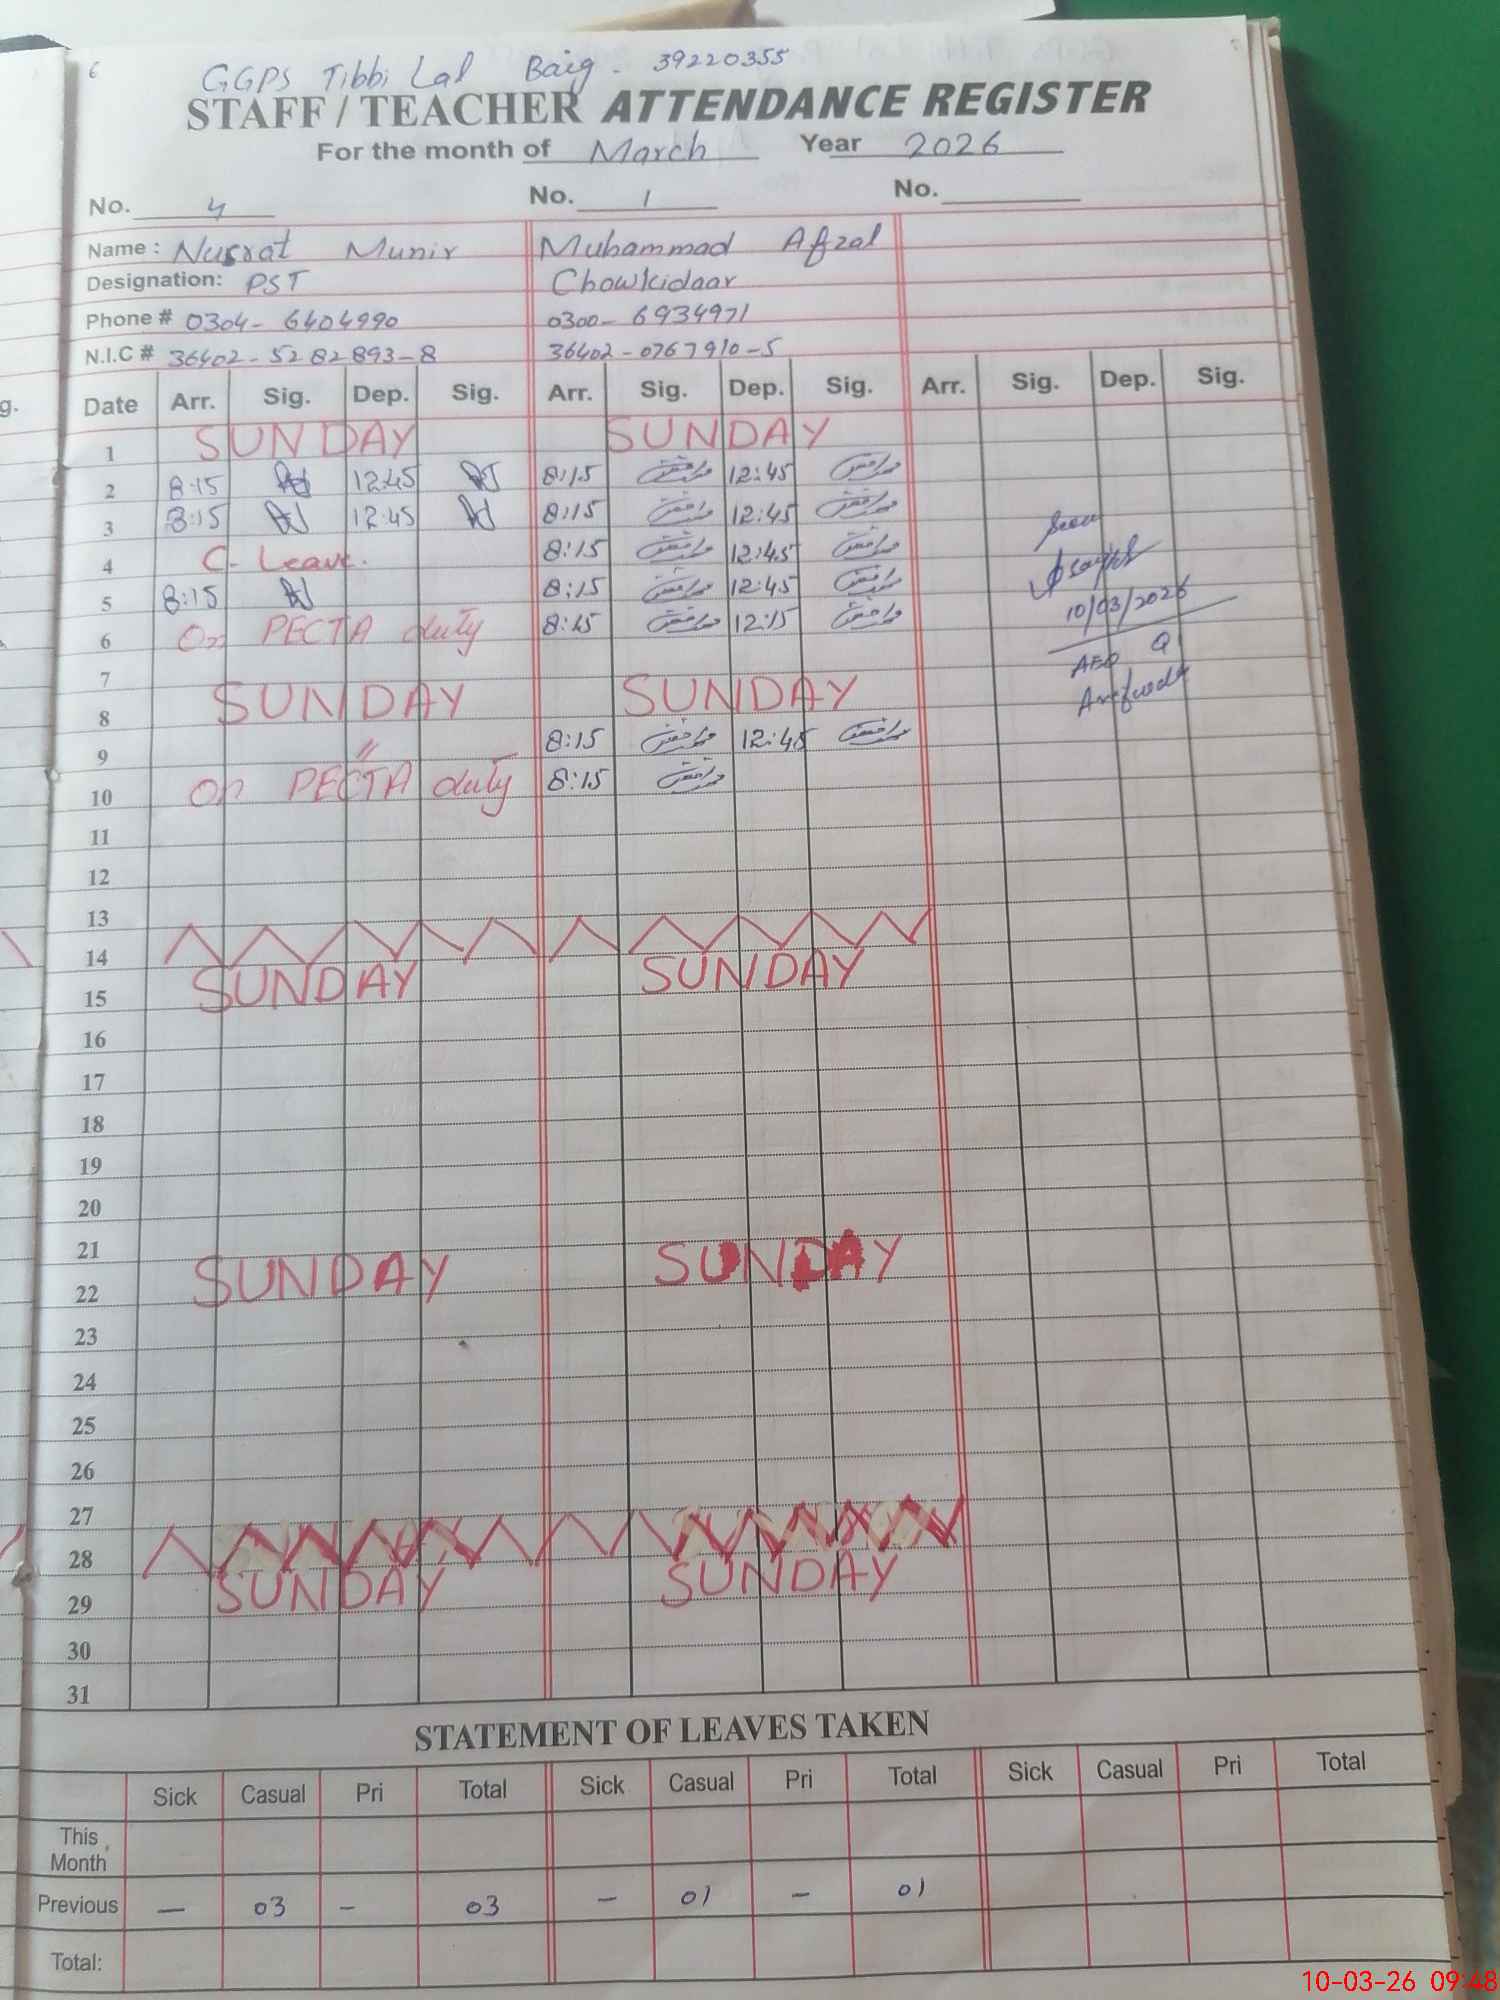 6
GGPS Tibbi Lal Baig - 39220355
STAFF / TEACHER ATTENDANCE REGISTER
For the month of March Year 2026
No. 4 No. 1 No.
Name : Nusrat Munir Muhammad Afzal
Designation: PST Chowkidaar
Phone # 0304- 6404990 0300- 6934971
N.I.C # 36402-5282893-8 36402-0767910-5
Date Arr. Sig. Dep. Sig. Arr. Sig. Dep. Sig. Arr. Sig. Dep. Sig.
1 SUNDAY SUNDAY
2 8:15 12:45 8:15 12:45
3 8:15 12:45 8:15 12:45
4 C- Leave. 8:15 12:45
5 8:15 8:15 12:45
6 On PECTA duty 8:15 12:15
7
8 SUNDAY SUNDAY
9 〃 8:15 12:45
10 On PECTA duty 8:15
11
12
13
14
15 SUNDAY SUNDAY
16
17
18
19
20
21
22 SUNDAY SUNDAY
23
24
25
26
27
28
29 SUNDAY SUNDAY
30
31
Seen
10/03/2026
AEO
STATEMENT OF LEAVES TAKEN
Sick Casual Pri Total Sick Casual Pri Total Sick Casual Pri Total
This Month
Previous — 03 – 03 – 01 – 01
Total:
g.
10-03-26 09:48